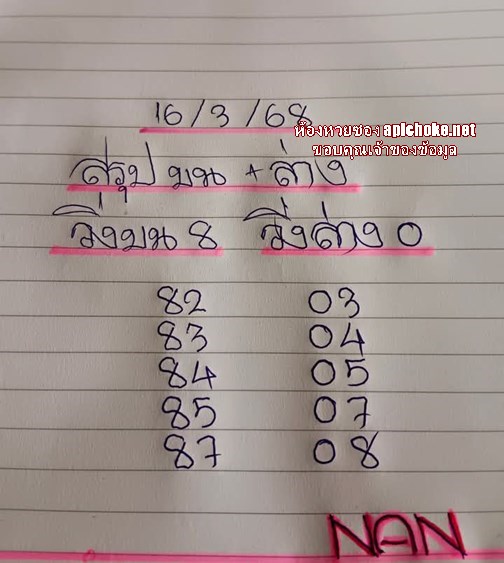 16/3/68
ห้องหวยซอง apichoke.net
ขอบคุณเจ้าของข้อมูล
สรุป บน + ล่าง
วิ่งบน 8 วิ่งล่าง 0
82 03
83 04
84 05
85 07
87 08
NAN